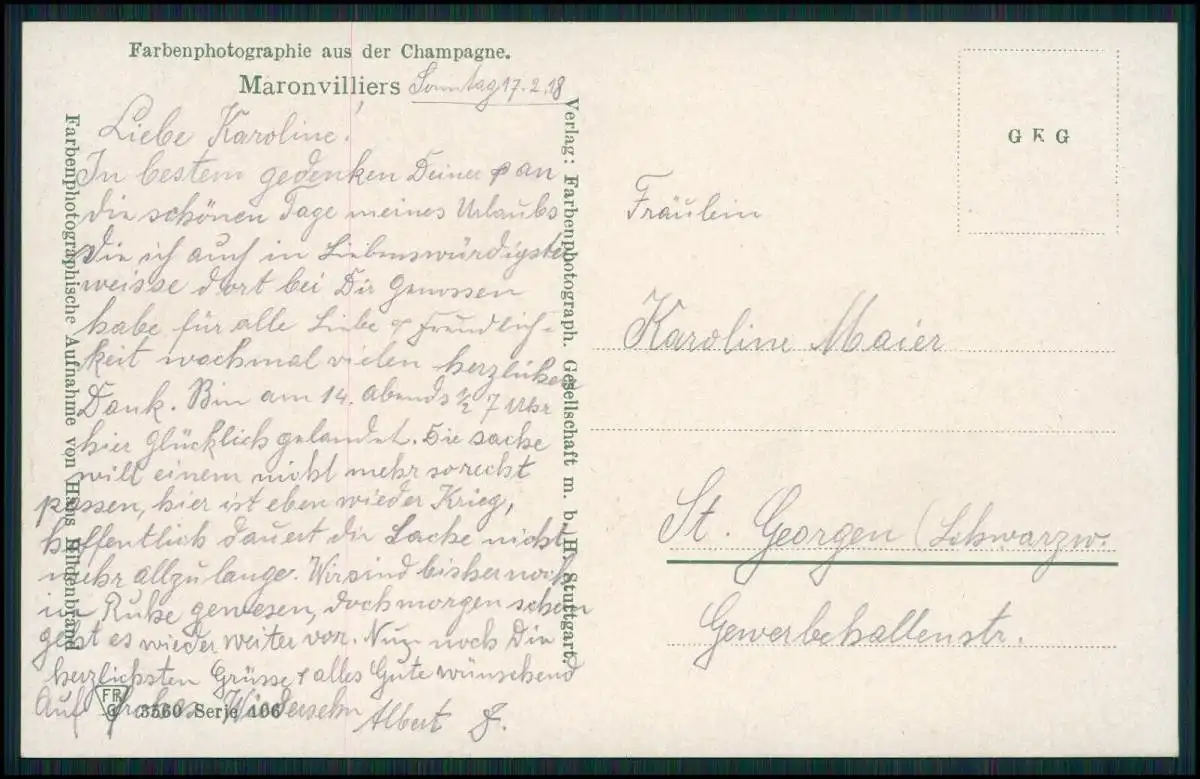 Farbenphotographie aus der Champagne.
Maronvilliers Sonntag 17.2.18
Liebe Karoline!
In bestem gedenken Deiner & an
die schönen Tage meines Urlaubs
die ich auch in Liebenswürdigster
weisse dort bei Dir Genossen
habe für alle Liebe & Freundlich-
keit nochmal vielen herzlichen
Dank. Bin am 14. abends ½ 7 Uhr
hier glücklich gelandet. Die sache
will einem nicht mehr so recht
passen, hier ist eben wieder Krieg,
hoffentlich dauert die Sache nicht
mehr allzulange. Wir sind bisher noch
in Ruhe gewesen, doch morgen schon
geht es wieder weiter vor. Nun noch Die
herzlichsten Grüsse & alles Gute wünschend
Auf frohes Wiedersehn
Albert F.
FPG
3560 Serie 106
Farbenphotographische Aufnahme von Hans Hildenbrand
Verlag: Farbenphotograph. Gesellschaft m. b. H. Stuttgart.
G K G
Fräulein
Karoline Maier
St. Georgen (Schwarzw.
Gewerbehallenstr.